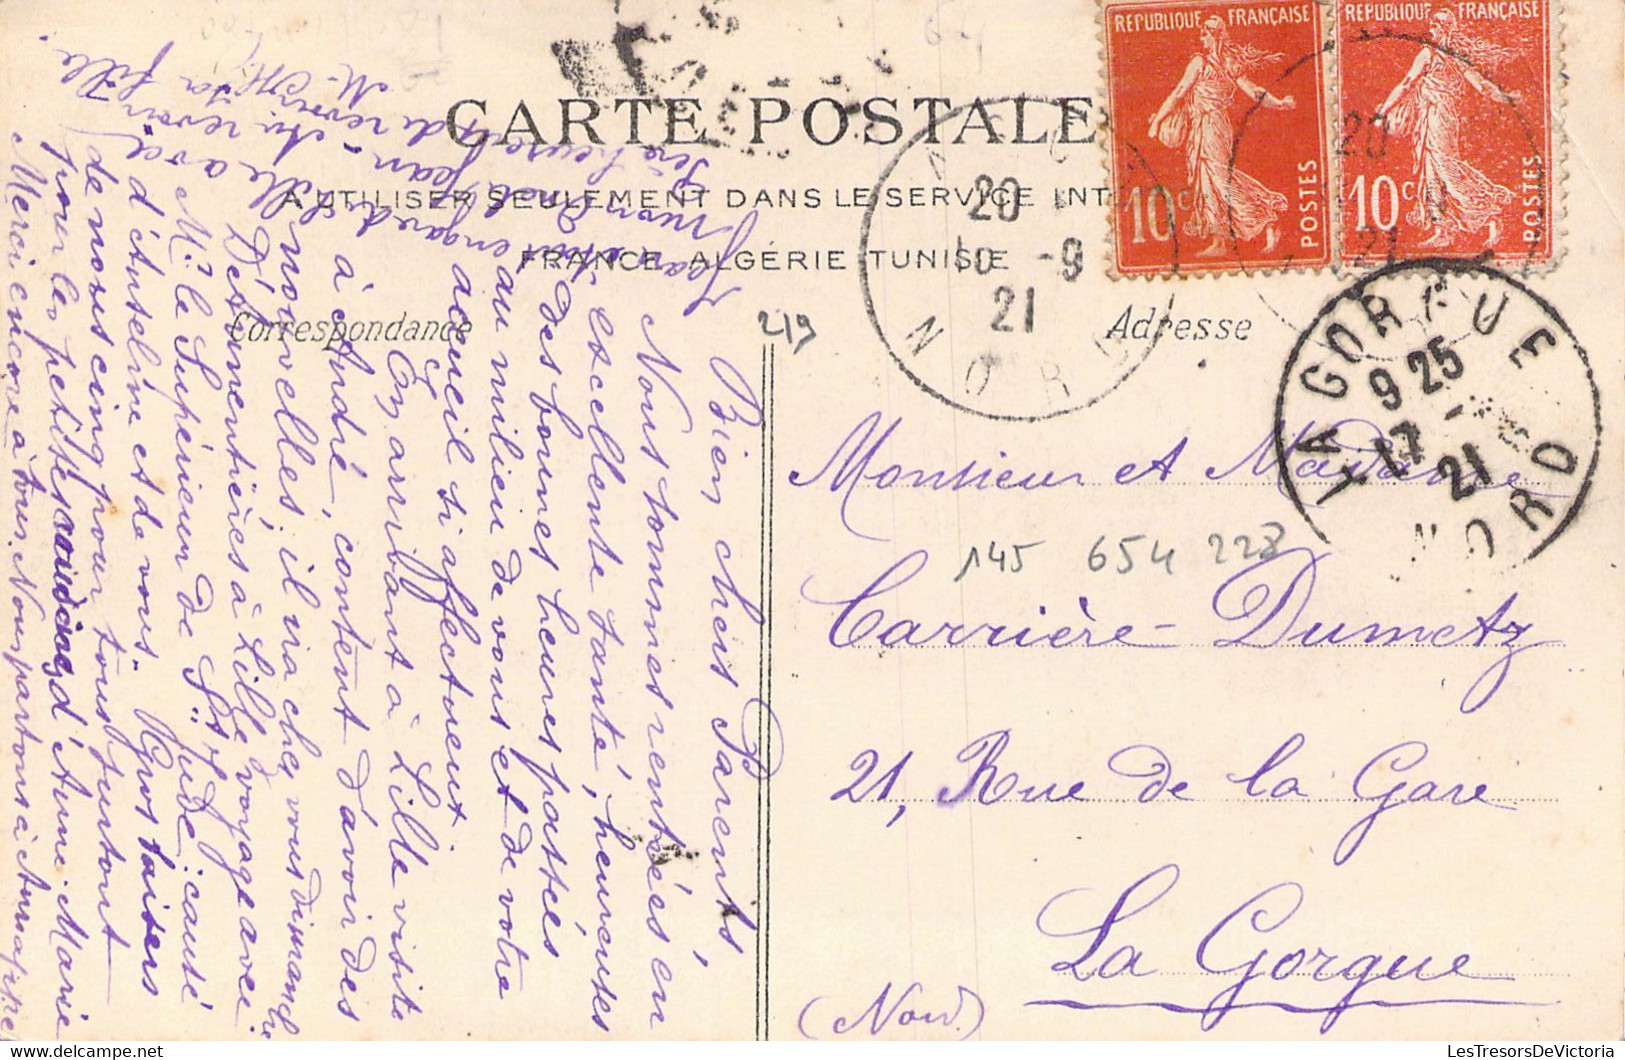 RÉPUBLIQUE FRANÇAISE
10c
POSTES
RÉPUBLIQUE FRANÇAISE
10c
POSTES
CARTE POSTALE
A UTILISER SEULEMENT DANS LE SERVICE
FRANCE, ALGÉRIE TUNISIE
Correspondance
Adresse
20
-9
21
NORD
20
21
LA GORGUE
9 25
17 -
21
NORD
219
145 654 228
Monsieur et Madame
Carrière-Dumetz
21, Rue de la Gare
La Gorgue
(Nord)
Bien chers Parents,
Nous sommes rentrées en
excellente santé, heureuses
des bonnes heures passées
au milieu de vous et de votre
accueil si affectueux.
En arrivant à Lille visite
à André, content d'avoir des
nouvelles, il ira chez vous dimanche
D'Armentières à Lille voyage avec
Mr le Supérieur de St Jude: causé
d'Anseline et de vous. Gros baisers
de nous cinq pour tous surtout
pour les petites d'Anne-Marie
Merci encore à tous. Nous partons à
Jean
Au revoir
M.
LesTresorsDeVictoria.com